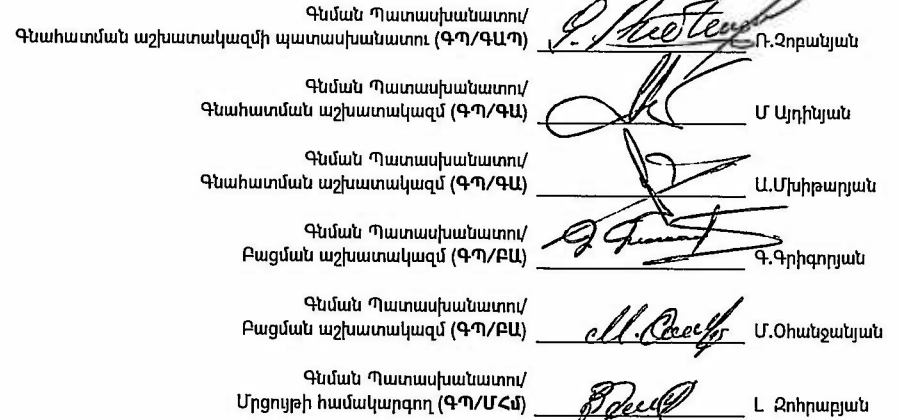 Գնման Պատասխանատու/
Գնահատման աշխատակազմի պատասխանատու (ԳՊ/ԳԱՊ) Ռ.Չոբանյան
Գնման Պատասխանատու/
Գնահատման աշխատակազմ (ԳՊ/ԳԱ) Մ Այդինյան
Գնման Պատասխանատու/
Գնահատման աշխատակազմ (ԳՊ/ԳԱ) Ա.Մխիթարյան
Գնման Պատասխանատու/
Բացման աշխատակազմ (ԳՊ/ԲԱ) Գ.Գրիգորյան
Գնման Պատասխանատու/
Բացման աշխատակազմ (ԳՊ/ԲԱ) Մ.Օհանջանյան
Գնման Պատասխանատու/
Մրցույթի համակարգող (ԳՊ/ՄՀմ) Լ Զոհրաբյան